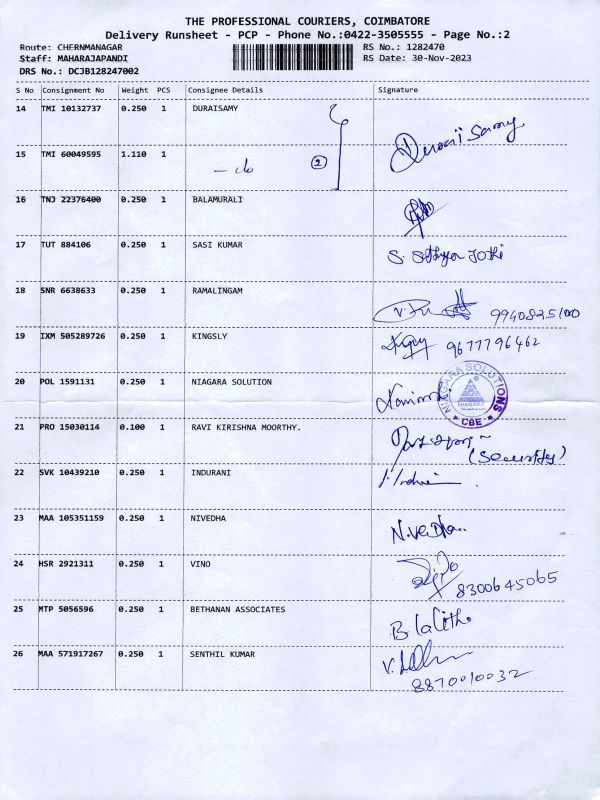 THE PROFESSIONAL COURIERS, COIMBATORE
Delivery Runsheet - PCP - Phone No.:0422-3505555 - Page No.:2
Route: CHERNMANAGAR RS No.: 1282470
Staff: MAHARAJAPANDI RS Date: 30-Nov-2023
DRS No.: DCJB128247002
S No Consignment No Weight PCS Consignee Details Signature
14 TMI 10132737 0.250 1 DURAISAMY
Duraisamy
15 TMI 60049595 1.110 1
- do 2
16 TNJ 22376400 0.250 1 BALAMURALI
17 TUT 884106 0.250 1 SASI KUMAR
S.
18 SNR 6638633 0.250 1 RAMALINGAM
9940825100
19 IXM 505289726 0.250 1 KINGSLY
9677796462
20 POL 1591131 0.250 1 NIAGARA SOLUTION
NIAGARA SOLUTIONS
NIAGARA
* CBE *
21 PRO 15030114 0.100 1 RAVI KIRISHNA MOORTHY.
(Security)
22 SVK 10439210 0.250 1 INDURANI
23 MAA 105351159 0.250 1 NIVEDHA
N.Vedha..
24 HSR 2921311 0.250 1 VINO
8300645065
25 MTP 5056596 0.250 1 BETHANAN ASSOCIATES
B lalitha
26 MAA 571917267 0.250 1 SENTHIL KUMAR
8870010032